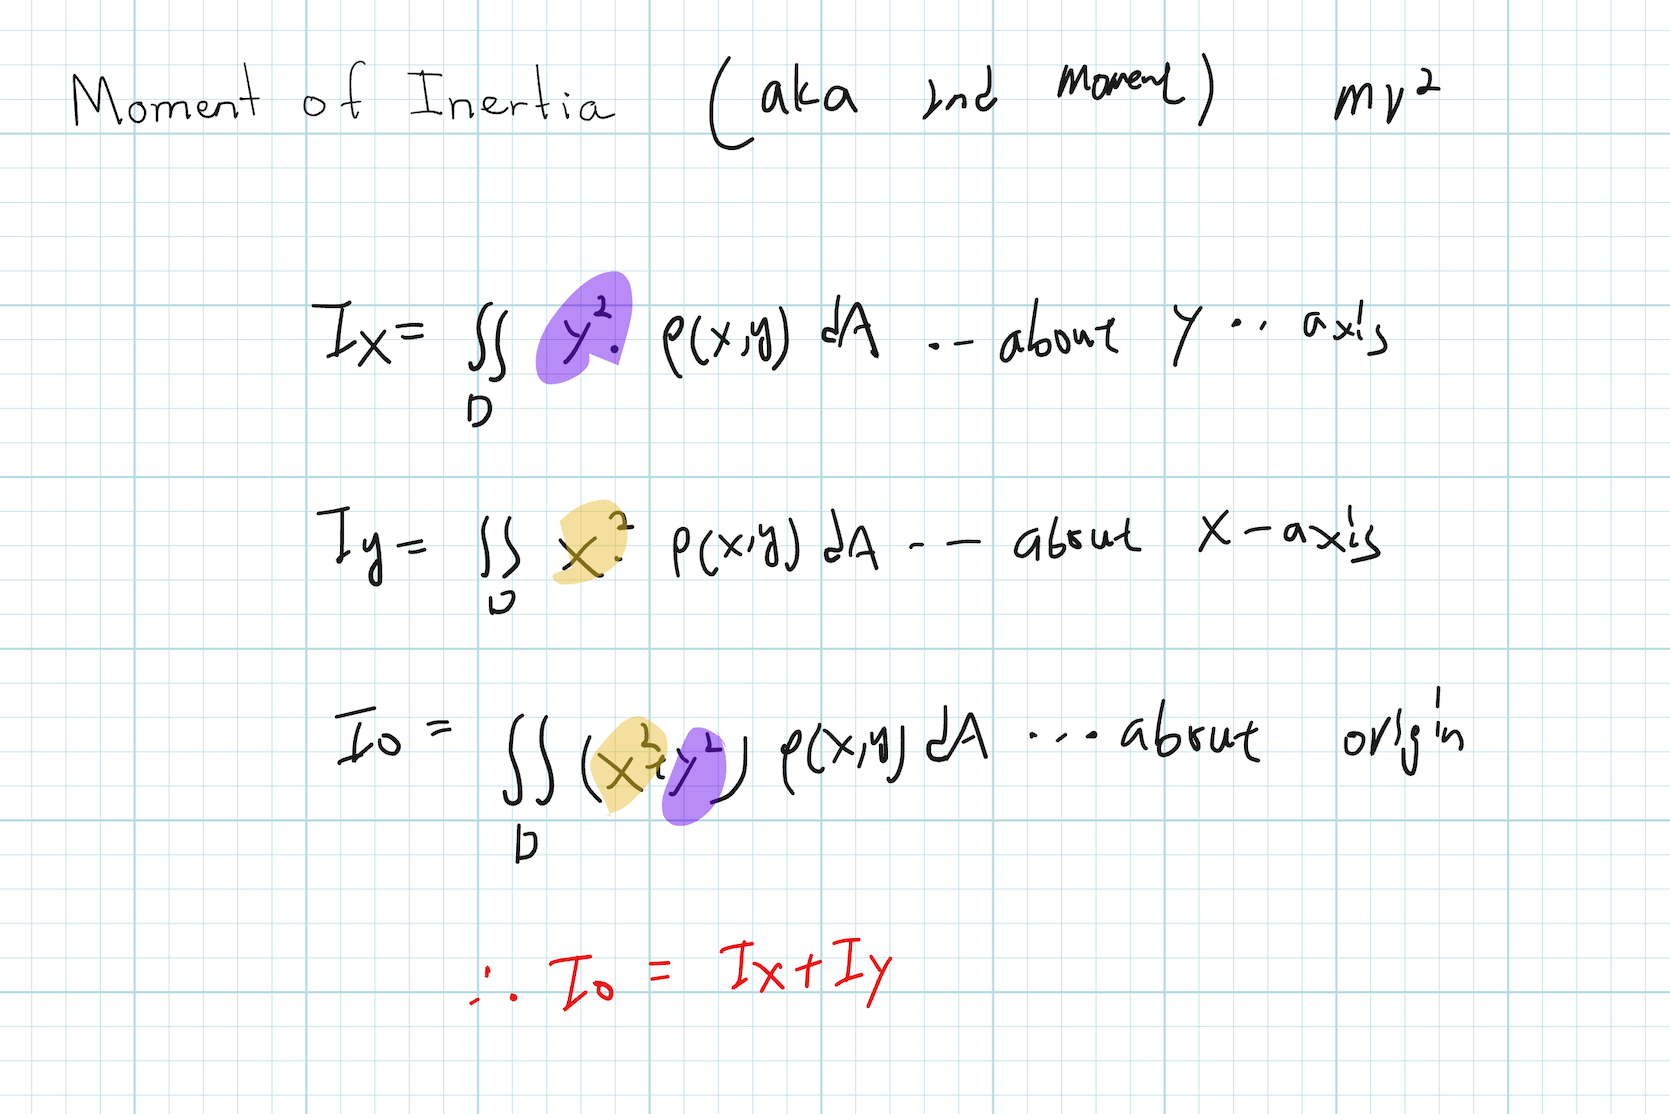 Moment of Inertia (aka 2nd moment) mr²
Ix = ∬D y²· ρ(x,y) dA ... about y ·· axis
Iy = ∬D x²· ρ(x,y) dA --- about x-axis
Io = ∬D (x²+y²) ρ(x,y) dA ... about origin
∴ Io = Ix + Iy